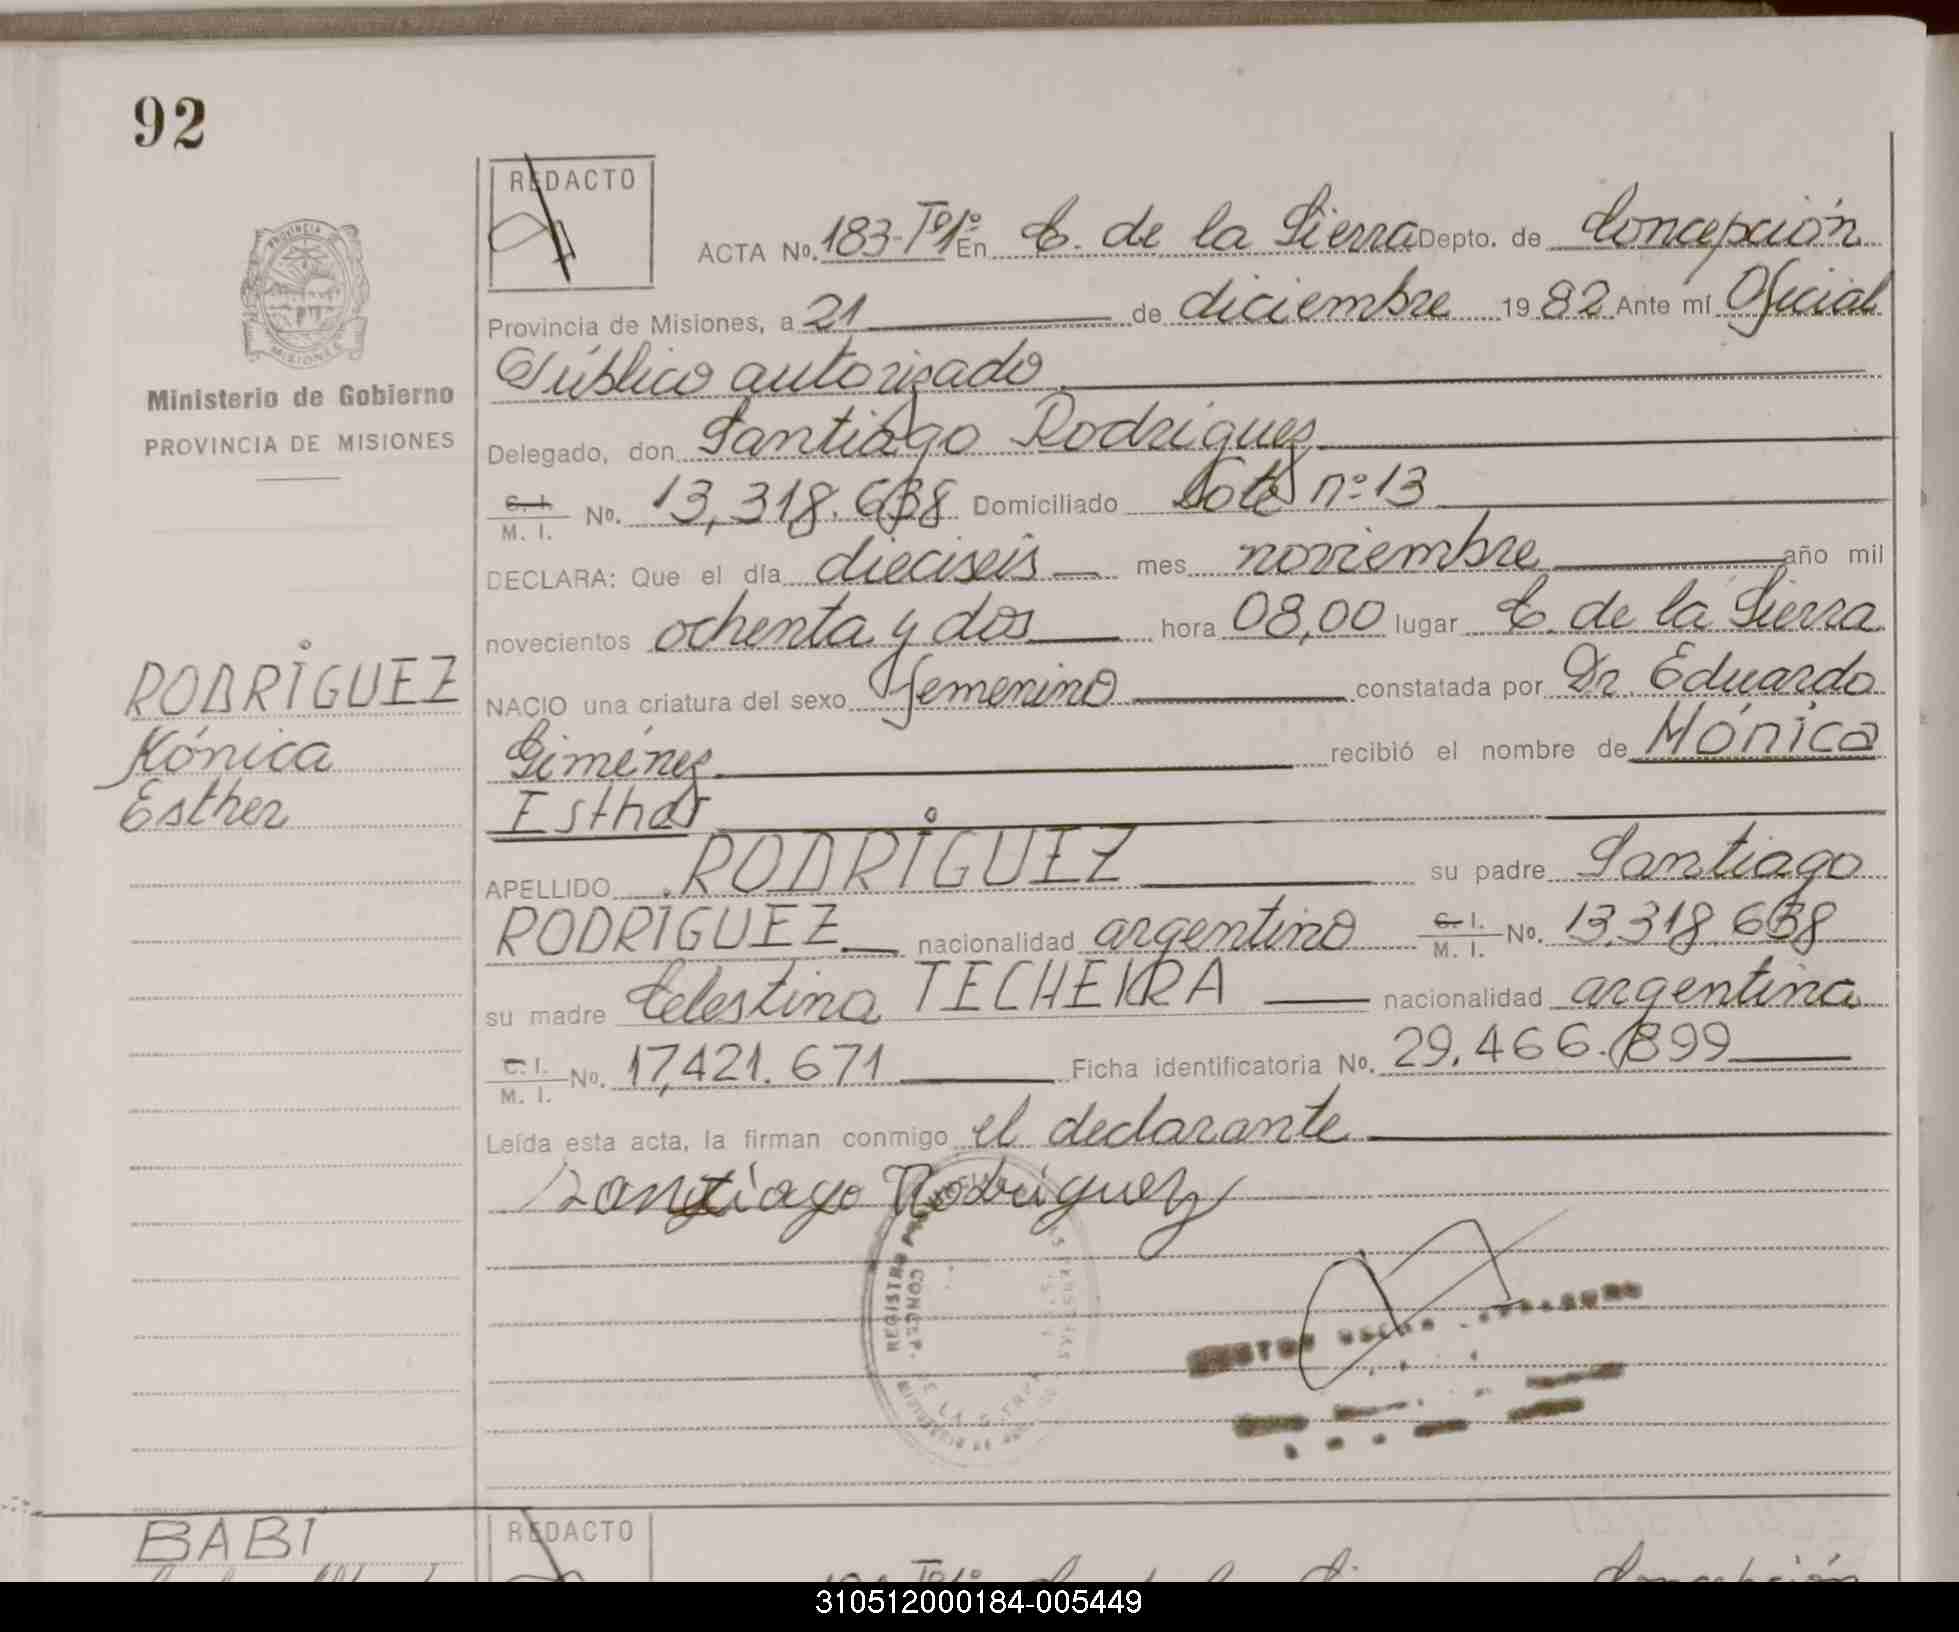 92
REDACTO
PROVINCIA
MISIONES
Ministerio de Gobierno
PROVINCIA DE MISIONES
ACTA No. 183-Tº1º En C. de la Sierra Depto. de Concepción
Provincia de Misiones, a 21 de diciembre 1982 Ante mí Oficial
Público autorizado
Delegado, don Santiago Rodrigues
C. I. M. I. No. 13,318.638 Domiciliado Lote nº 13
DECLARA: Que el día dieciseis mes noviembre año mil
novecientos ochenta y dos hora 08,00 lugar C. de la Sierra
RODRIGUEZ
Mónica
Esther
NACIO una criatura del sexo femenino constatada por Dr. Eduardo
Giménez recibió el nombre de Mónica
Esther
APELLIDO RODRIGUEZ su padre Santiago
RODRIGUEZ nacionalidad argentino C. I. M. I. No. 13,318.638
su madre Celestina TECHEIRA nacionalidad argentina
C. I. M. I. No. 17,421.671 Ficha identificatoria No. 29.466.899
Leída esta acta, la firman conmigo el declarante
Santiago Rodriguez
REGISTRO
CONCEP.
DE LA
BABI
REDACTO
Concepción
310512000184-005449